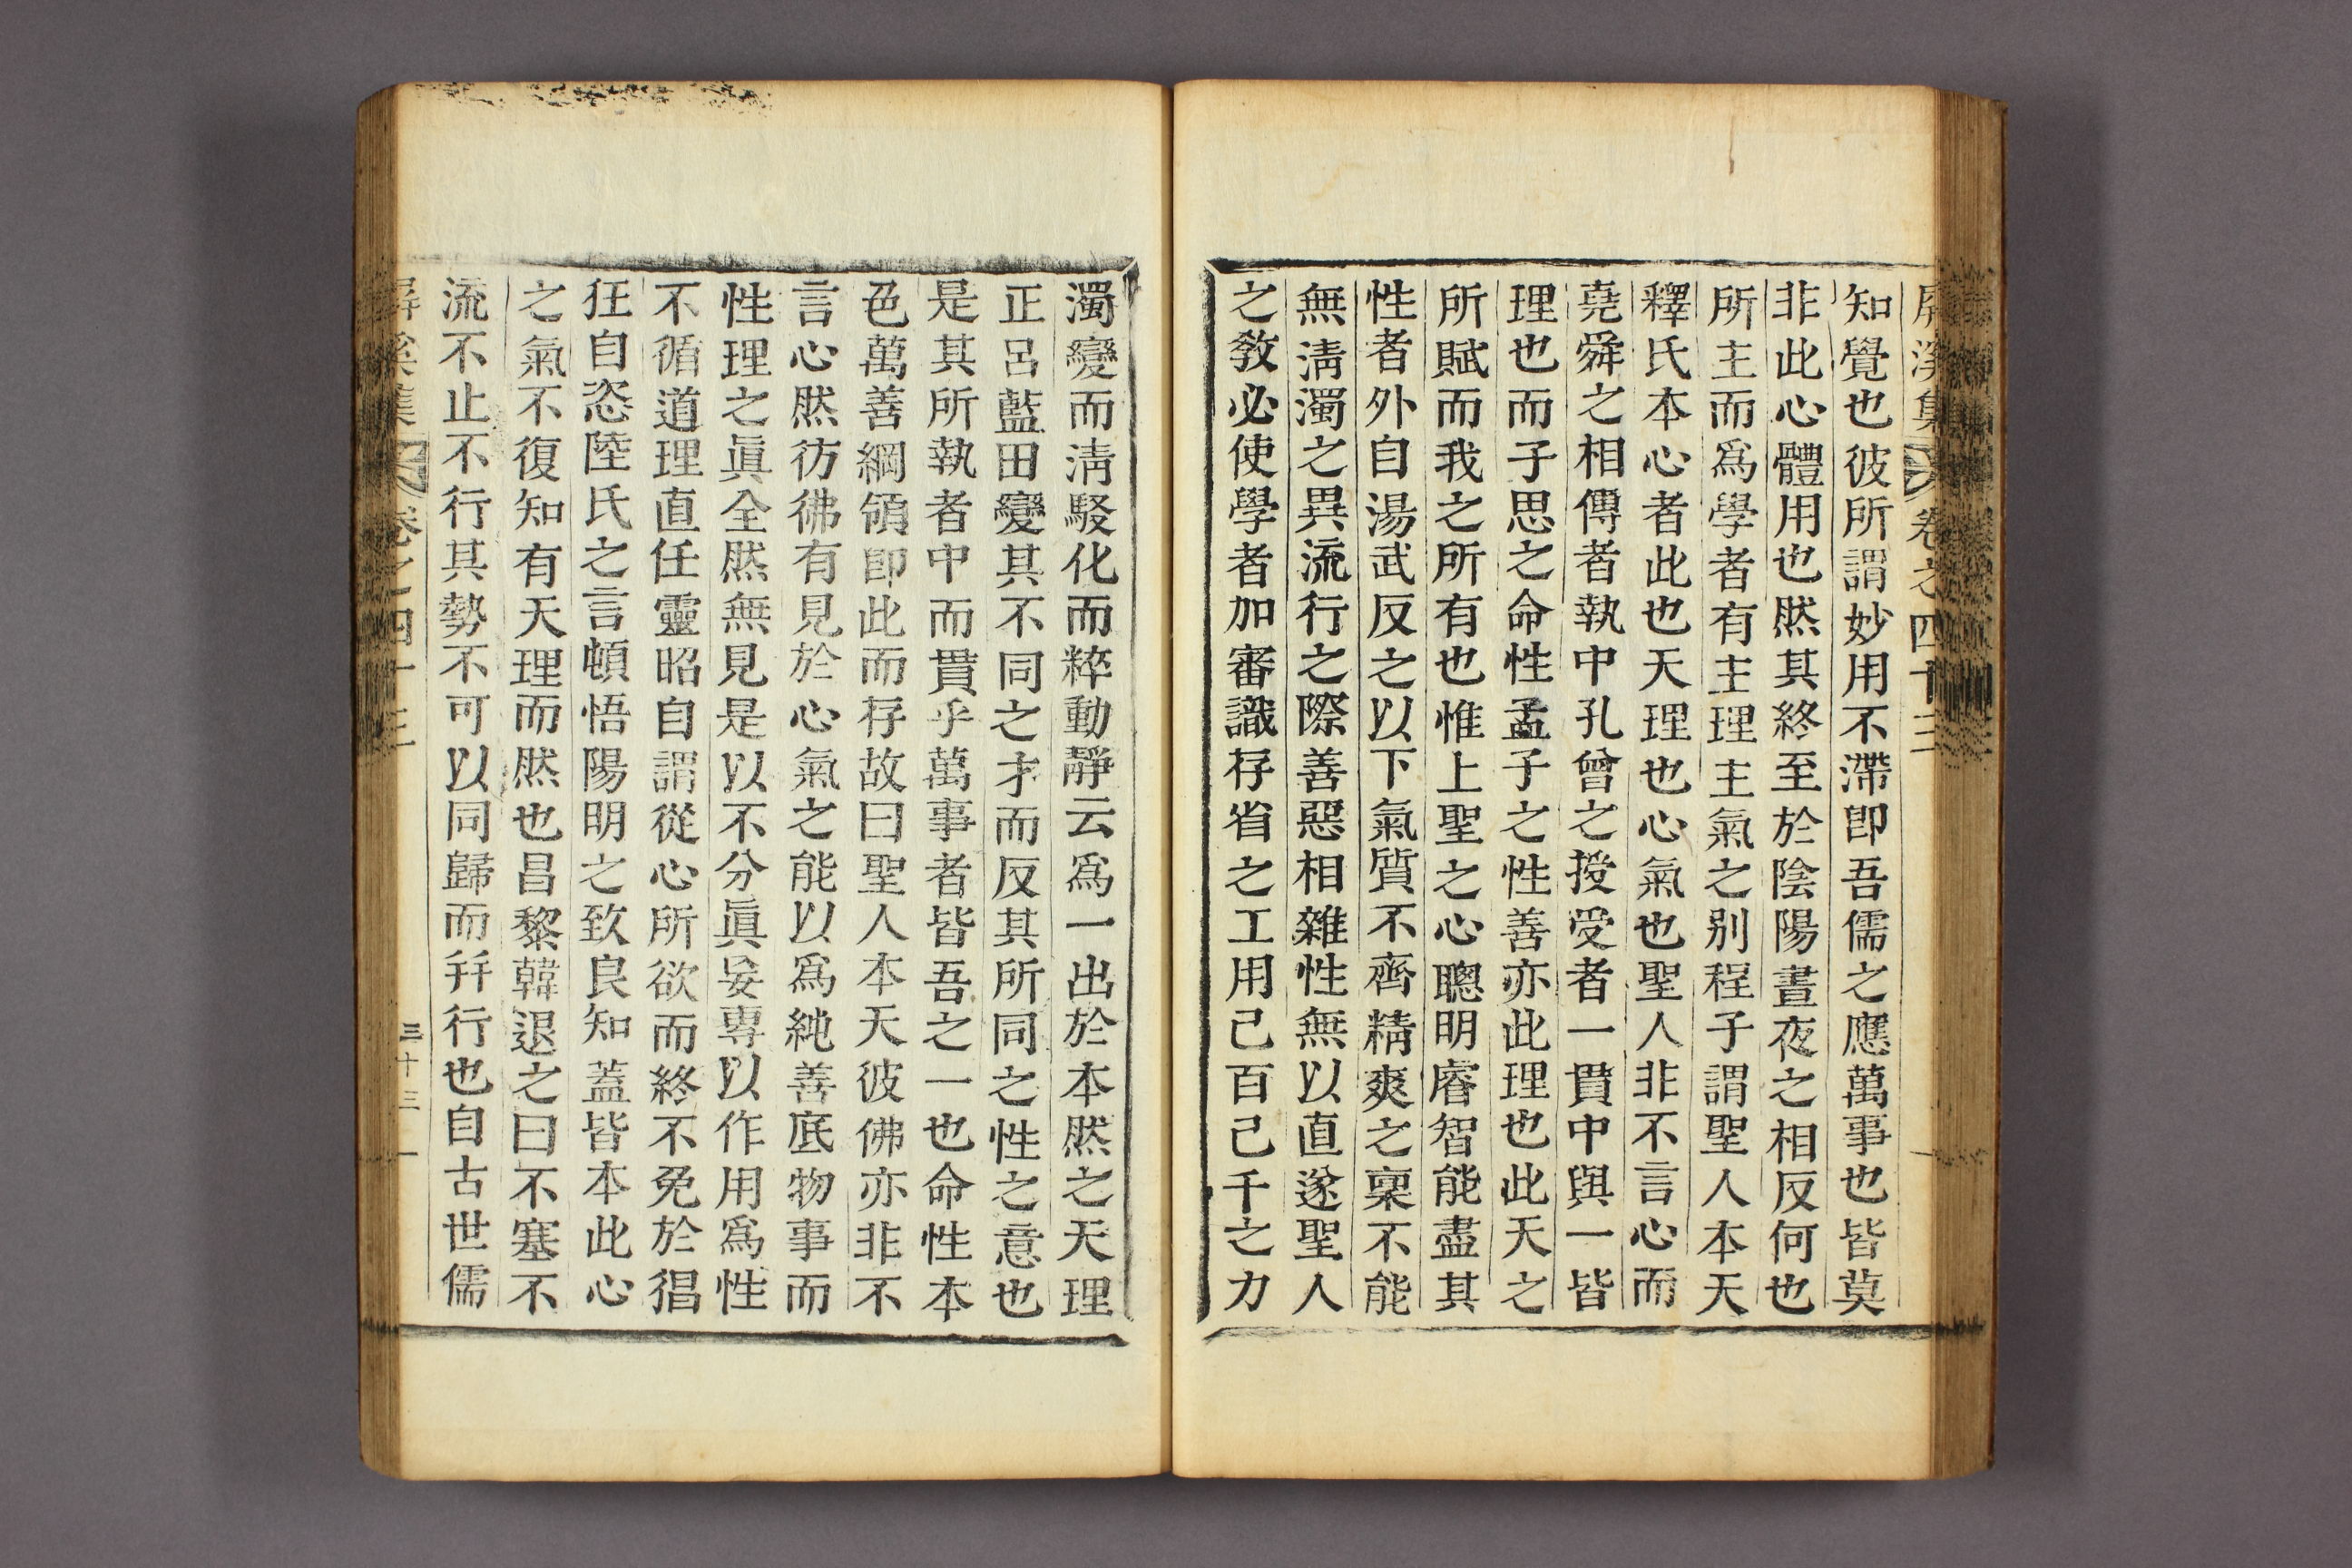 屛溪集 卷之四十三
知覺也彼所謂妙用不滯卽吾儒之應萬事也皆莫
非此心體用也然其終至於陰陽晝夜之相反何也
所主而爲學者有主理主氣之別程子謂聖人本天
釋氏本心者此也天理也心氣也聖人非不言心而
堯舜之相傳者執中孔曾之授受者一貫中與一皆
理也而子思之命性孟子之性善亦此理也此天之
所賦而我之所有也惟上聖之心聰明睿智能盡其
性者外自湯武反之以下氣質不齊精爽之稟不能
無淸濁之異流行之際善惡相雜性無以直遂聖人
之敎必使學者加審識存省之工用己百己千之力
濁變而淸駁化而粹動靜云爲一出於本然之天理
正呂藍田變其不同之才而反其所同之性之意也
是其所執者中而貫乎萬事者皆吾之一也命性本
色萬善綱領卽此而存故曰聖人本天彼佛亦非不
言心然彷彿有見於心氣之能以爲純善底物事而
性理之眞全然無見是以不分眞妄專以作用爲性
不循道理直任靈昭自謂從心所欲而終不免於猖
狂自恣陸氏之言頓悟陽明之致良知蓋皆本此心
之氣不復知有天理而然也昌黎韓退之曰不塞不
流不止不行其勢不可以同歸而幷行也自古世儒
屛溪集 卷之四十三 三十三